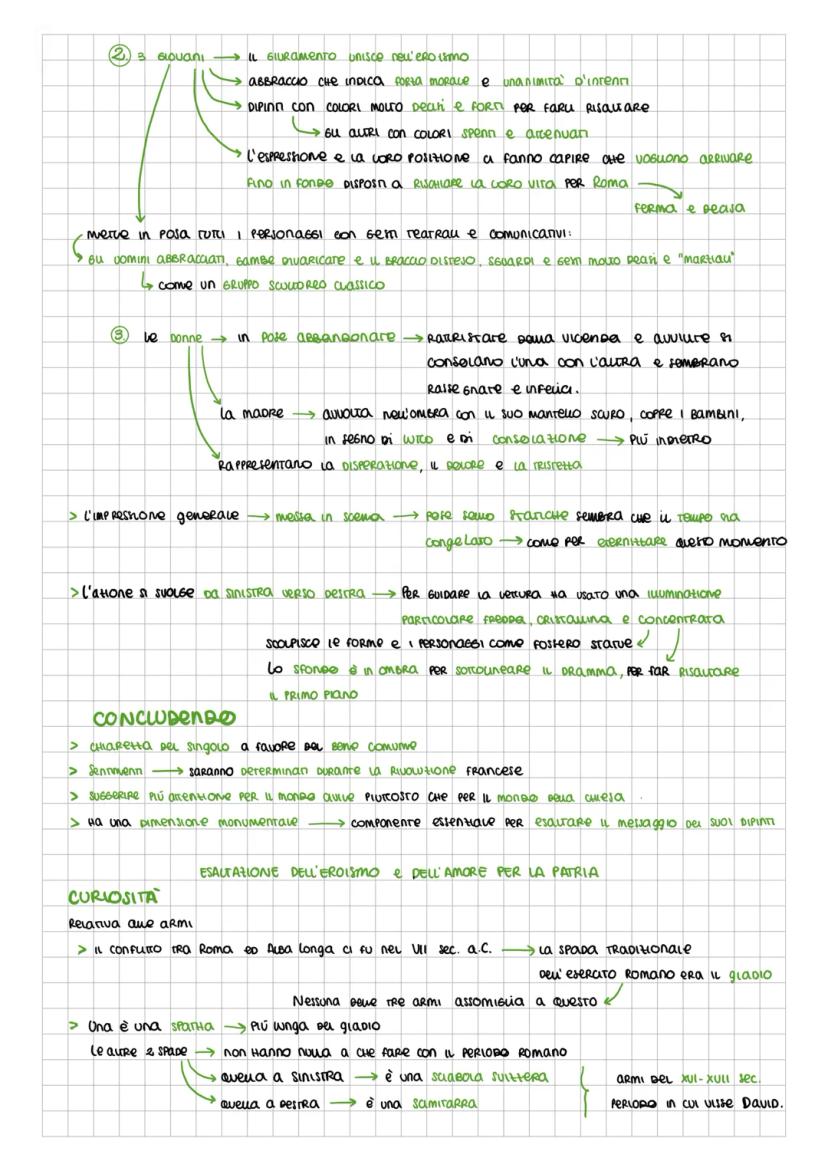 ② 3 GIOVANI → IL GIURAMENTO UNISCE NELL'EROISMO
→ ABBRACCIO CHE INDICA FORZA MORALE E UNANIMITA' D'INTENTI
→ DIPINTI CON COLORI MOLTO DECISI E FORTI PER FARLI RISALTARE
→ GLI ALTRI CON COLORI SPENTI E ATTENUATI
→ L'ESPRESSIONE E LA LORO POSIZIONE CI FANNO CAPIRE CHE VOGLIONO ARRIVARE
FINO IN FONDO DISPOSTI A RISCHIARE LA LORO VITA PER ROMA →
FERMA E DECISA
METTE IN POSA TUTTI I PERSONAGGI CON GESTI TEATRALI E COMUNICATIVI:
GLI UOMINI ABBRACCIATI, GAMBE DIVARICATE E IL BRACCIO DISTESO, SGUARDI E GESTI MOLTO DECISI E "MARTIALI"
→ COME UN GRUPPO SCULTOREO CLASSICO
③ LE DONNE → IN POSE ABBANDONATE → RATTRISTATE DALLA VICENDA E AVVILITE SI
CONSOLANO L'UNA CON L'ALTRA E SEMBRANO
RASSEGNATE E INFELICI.
LA MADRE → AVVOLTA NELL'OMBRA CON IL SUO MANTELLO SCURO, COPRE I BAMBINI,
IN SEGNO DI LUTTO E DI CONSOLAZIONE → PIÚ INDIETRO
RAPPRESENTANO LA DISPERAZIONE, IL DOLORE E LA TRISTEZZA
> L'IMPRESSIONE GENERALE → MESSA IN SCENA → POSE SONO STATICHE SEMBRA CHE IL TEMPO SIA
CONGELATO → COME PER ETERNIZZARE QUESTO MOMENTO
> L'AZIONE SI SVOLGE DA SINISTRA VERSO DESTRA → PER GUIDARE LA LETTURA HA USATO UNA ILLUMINAZIONE
PARTICOLARE FREDDA, CRISTALLINA E CONCENTRATA
SCOLPISCE LE FORME E I PERSONAGGI COME FOSSERO STATUE
LO SFONDO È IN OMBRA PER SOTTOLINEARE IL DRAMMA, PER FAR RISALTARE
IL PRIMO PIANO
CONCLUDENDO
> CHIAREZZA DEL SINGOLO A FAVORE DEL BENE COMUNE
> SENTIMENTI → SARANNO DETERMINATI DURANTE LA RIVOLUZIONE FRANCESE
> SUGGERIRE PIÚ ATTENZIONE PER IL MONDO CIVILE PIUTTOSTO CHE PER IL MONDO DELLA CHIESA.
> HA UNA DIMENSIONE MONUMENTALE → COMPONENTE ESSENZIALE PER ESALTARE IL MESSAGGIO DEI SUOI DIPINTI
ESALTAZIONE DELL'EROISMO E DELL'AMORE PER LA PATRIA
CURIOSITÀ
RELATIVA ALLE ARMI
> IL CONFLITTO TRA ROMA ED ALBA LONGA CI FU NEL VII SEC. A.C. → LA SPADA TRADIZIONALE
DELL'ESERCITO ROMANO ERA IL GLADIO
NESSUNA DELLE TRE ARMI ASSOMIGLIA A QUESTO
> UNA È UNA SPATHA → PIÚ LUNGA DEL GLADIO
LE ALTRE 2 SPADE → NON HANNO NULLA A CHE FARE CON IL PERIODO ROMANO
→ QUELLA A SINISTRA → È UNA SCIABOLA SVIZZERA
ARMI DEL XVI-XVII SEC.
→ QUELLA A DESTRA → È UNA SCIMITARRA
PERIODO IN CUI VISSE DAVID.